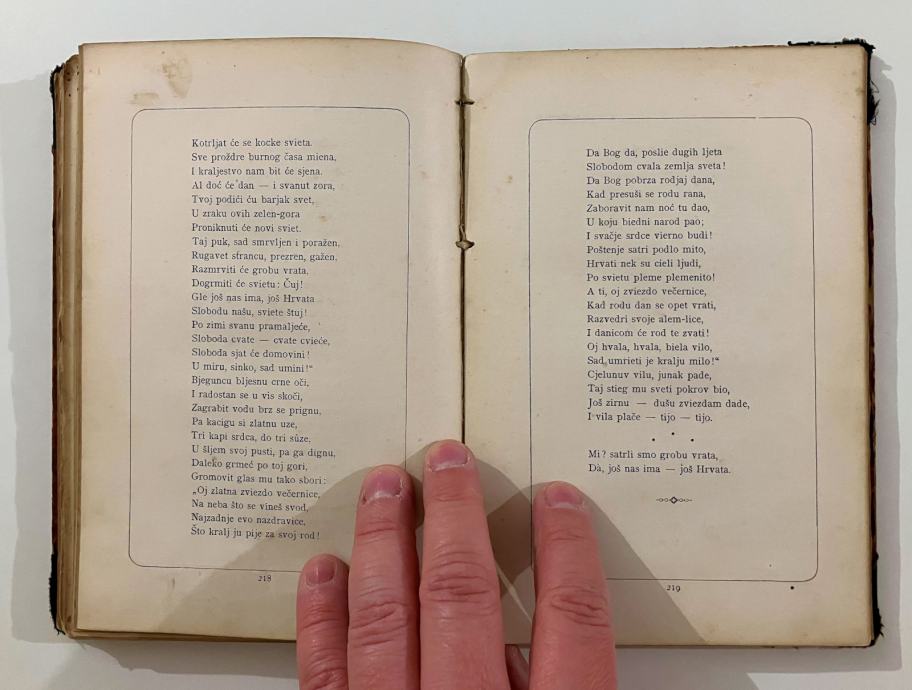 Kotrljat će se kocke svieta.
Sve proždre burnog časa miena,
I kraljestvo nam bit će sjena.
Al doć će dan — i svanut zora,
Tvoj podići ću barjak svet,
U zraku ovih zelen-gora
Proniknuti će novi sviet.
Taj puk, sad smrvljen i poražen,
Rugavet strancu, prezren, gažen,
Razmrviti će grobu vrata,
Dogrmiti će svietu: Čuj!
Gle još nas ima, još Hrvata
Slobodu našu, sviete štuj!
Po zimi svanu pramaljeće,
Sloboda cvate — cvate cvieće,
Sloboda sjat će domovini!
U miru, sinko, sad umini!“
Bjeguncu bljesnu crne oči,
I radostan se u vis skoči,
Zagrabit vodu brz se prignu,
Pa kacigu si zlatnu uze,
Tri kapi srdca, do tri sûze,
U šljem svoj pusti, pa ga dignu,
Daleko grmeć po toj gori,
Gromovit glas mu tako sbori:
„Oj zlatna zviezdo večernice,
Na neba što se vineš svod,
Najzadnje evo nazdravice,
Što kralj ju pije za svoj rod!
218
Da Bog da, poslie dugih ljeta
Slobodom cvala zemlja sveta!
Da Bog pobrza rodjaj dana,
Kad presuši se rodu rana,
Zaboravit nam noć tu dao,
U koju biedni narod pao;
I svačje srdce vierno budi!
Poštenje satri podlo mito,
Hrvati nek su cieli ljudi,
Po svietu pleme plemenito!
A ti, oj zviezdo večernice,
Kad rodu dan se opet vrati,
Razvedri svoje alem-lice,
I danicom će rod te zvati!
Oj hvala, hvala, biela vilo,
Sad umrieti je kralju milo!“
Cjelunuv vilu, junak pade,
Taj stieg mu sveti pokrov bio,
Još zirnu — dušu zviezdam dade,
I vila plače — tijo — tijo.
Mi? satrli smo grobu vrata,
Dà, još nas ima — još Hrvata.
219